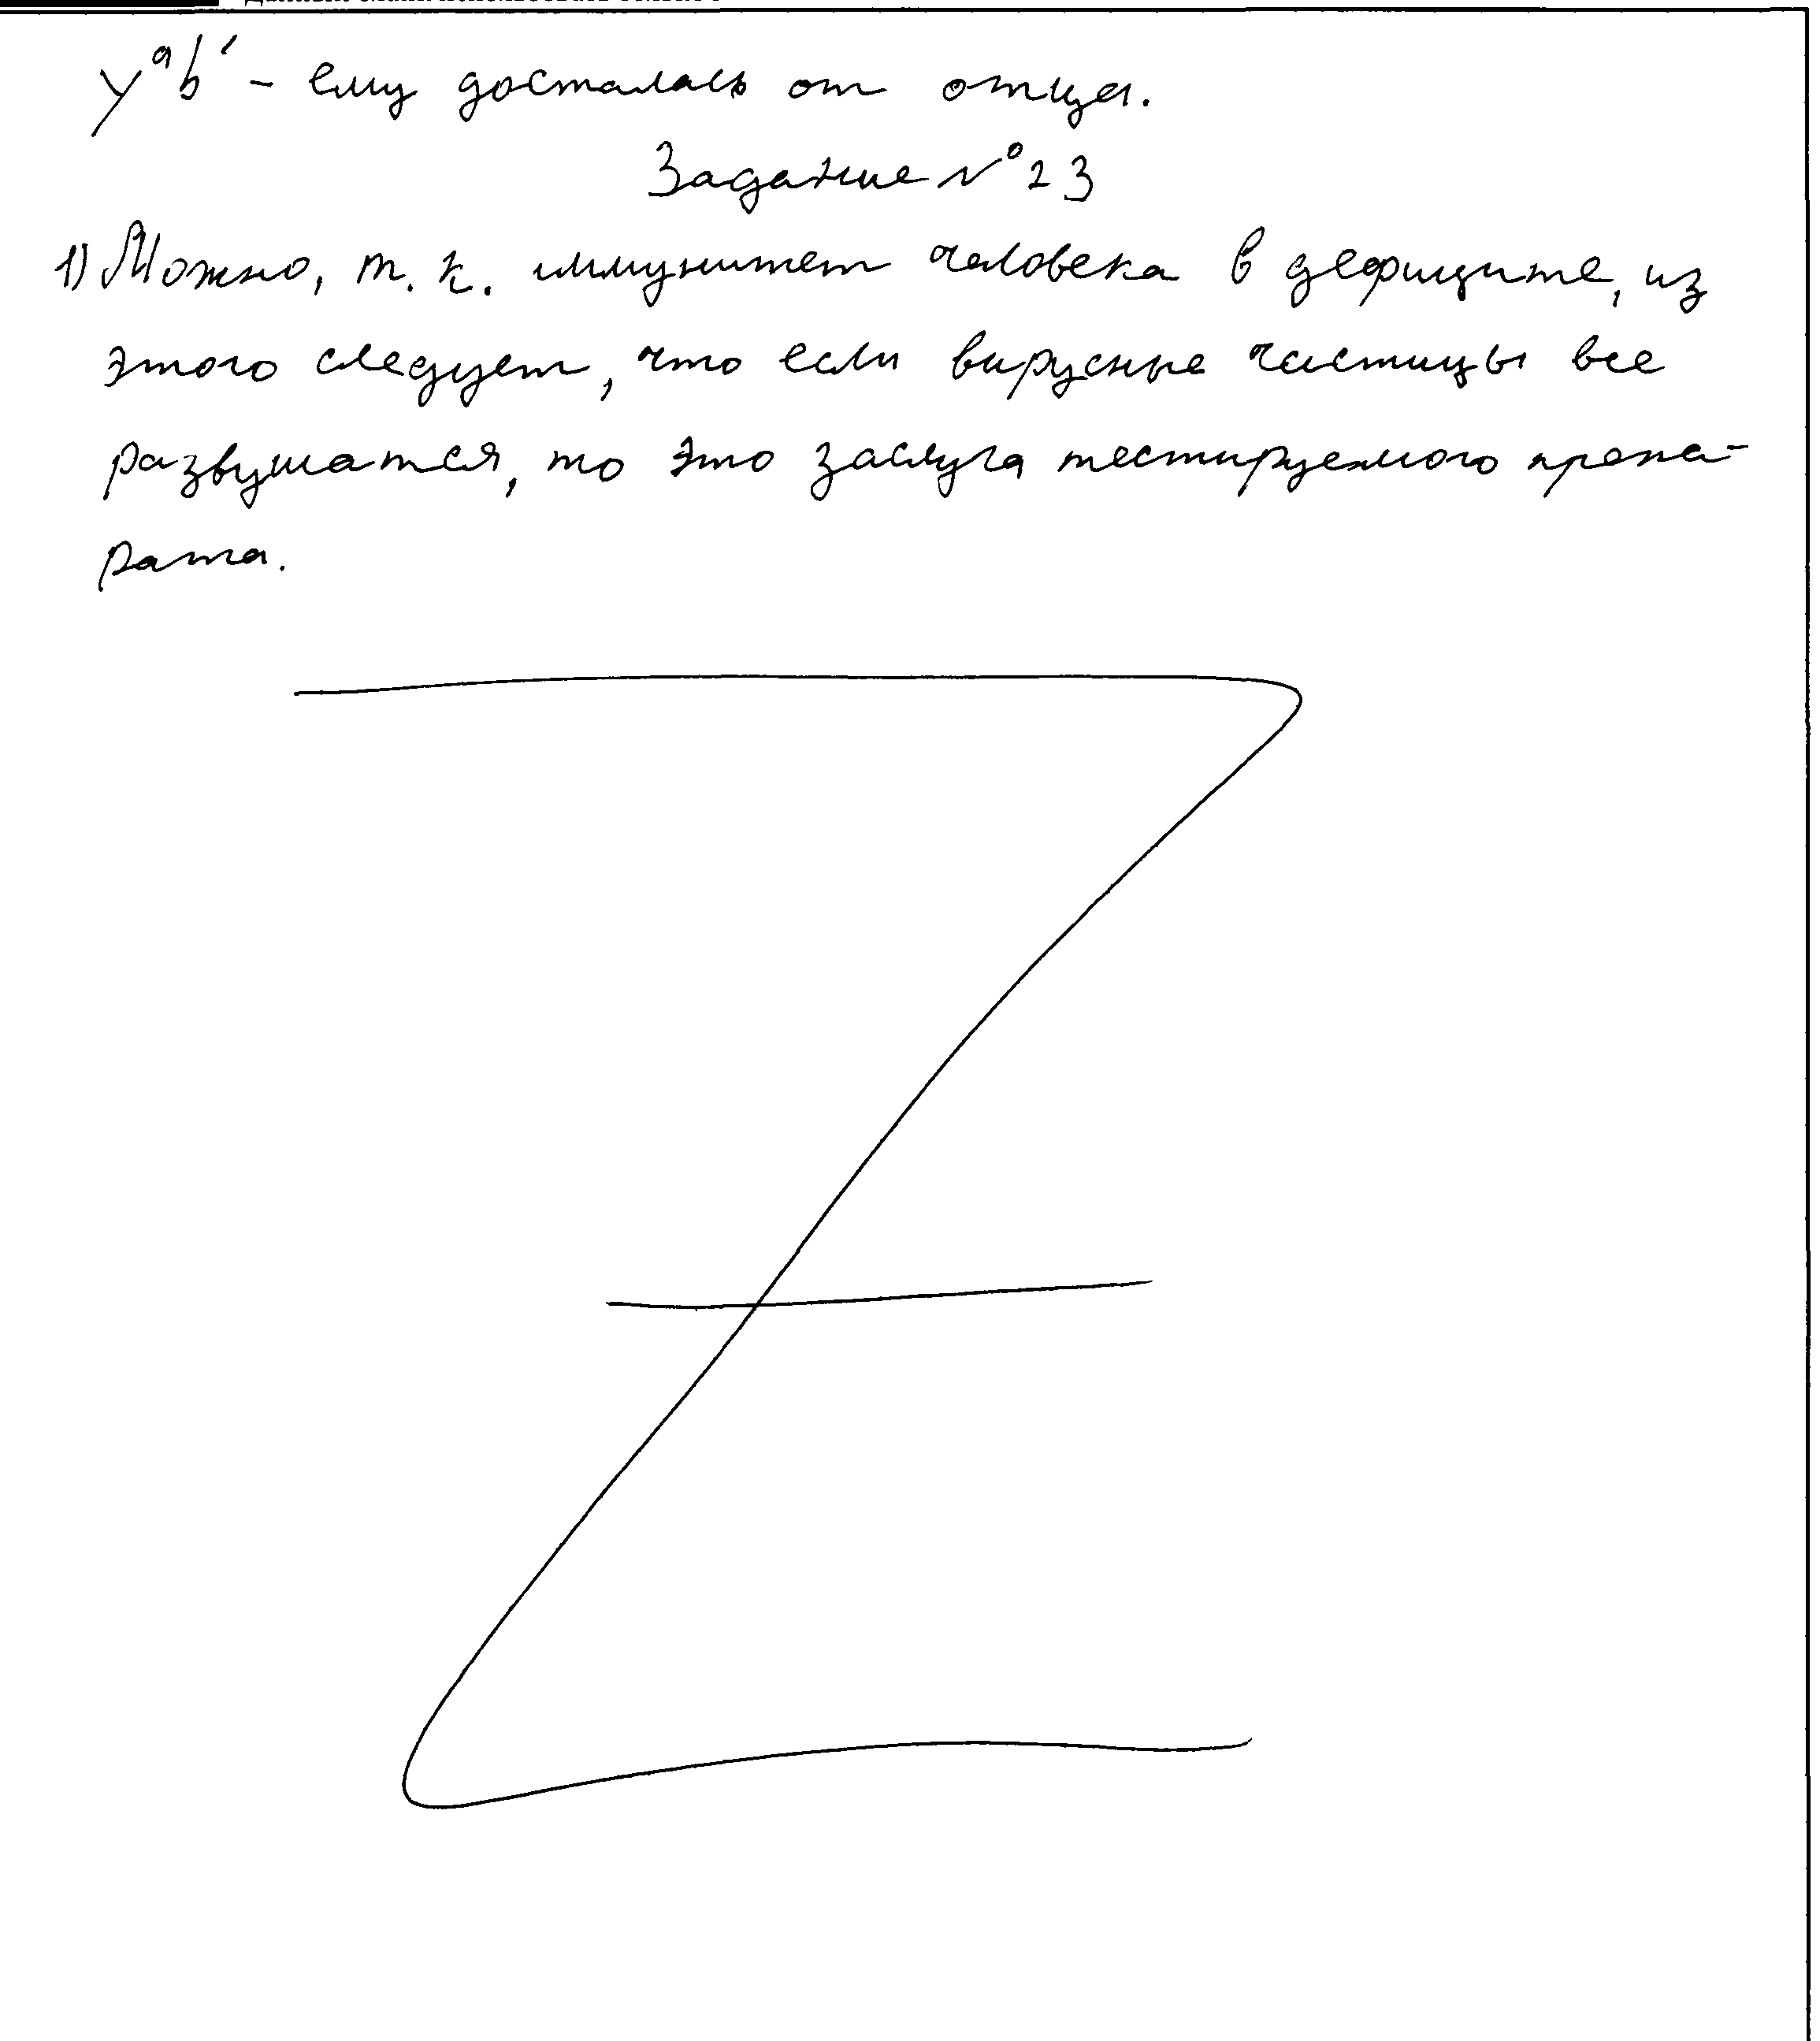 Yᵃb' - ему досталась от отца.
Задание №23
1) Можно, т. к. иммунитет человека в дефиците, из
этого следует, что если вирусные частицы все
разрушатся, то это заслуга тестируемого препа-
рата.